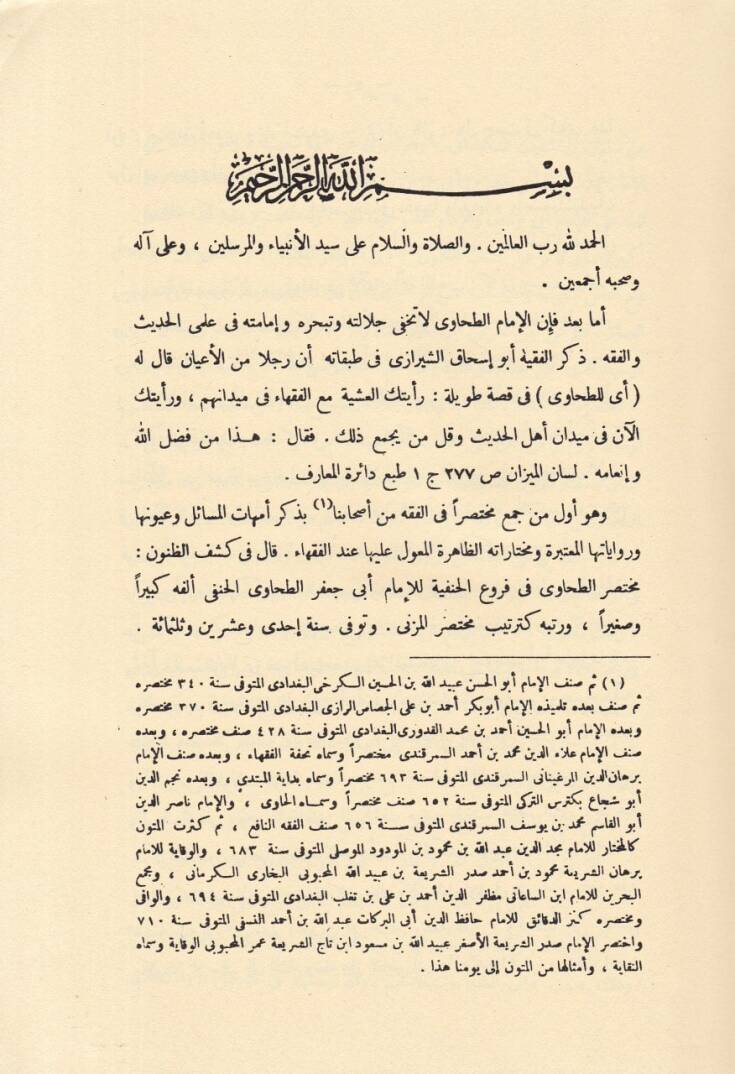 بسم الله الرحمن الرحيم
الحمد لله رب العالمين . والصلاة والسلام على سيد الأنبياء والمرسلين ، وعلى آله
وصحبه أجمعين .
أما بعد فإن الإمام الطحاوى لا تخفى جلالته وتبحره وإمامته فى علمى الحديث
والفقه . ذكر الفقيه أبو إسحاق الشيرازى فى طبقاته أن رجلا من الأعيان قال له
( أى للطحاوى ) فى قصة طويلة : رأيتك العشية مع الفقهاء فى ميدانهم ، ورأيتك
الآن فى ميدان أهل الحديث وقل من يجمع ذلك . فقال : هـذا من فضل الله
وإنعامه . لسان الميزان ص ٢٧٧ ج ١ طبع دائرة المعارف .
وهو أول من جمع مختصراً فى الفقه من أصحابنا(١) بذكر أمهات المسائل وعيونها
ورواياتها المعتبرة ومختاراته الظاهرة المعول عليها عند الفقهاء . قال فى كشف الظنون :
مختصر الطحاوى فى فروع الحنفية للإمام أبى جعفر الطحاوى الحنفى ألفه كبيراً
وصغيراً ، ورتبه كترتيب مختصر المزنى . وتوفى سنة إحدى وعشرين وثلثمائة .
(١) ثم صنف الإمام أبو الحسن عبيد الله بن الحسين الكرخى البغدادى المتوفى سنة ٣٤٠ مختصره
ثم صنف بعده تلميذه الإمام أبوبكر أحمد بن على الجصاص الرازى البغدادى المتوفى سنة ٣٧٠ مختصره
وبعده الإمام أبو الحسين أحمد بن محمد القدورى البغدادى المتوفى سنة ٤٢٨ صنف مختصره ، وبعده
صنف الإمام علاء الدين محمد بن أحمد السمرقندى مختصراً وسماه تحفة الفقهاء ، وبعده صنف الإمام
برهان الدين المرغينانى السمرقندى المتوفى سنة ٦٩٣ مختصراً وسماه بداية المبتدى ، وبعده نجم الدين
أبو شجاع بكترس التركى المتوفى سنة ٦٥٢ صنف مختصراً وسمـاه الحاوى ، والإمام ناصر الدين
أبو القاسم محمد بن يوسف السمرقندى المتوفى سنة ٦٥٦ صنف الفقه النافع ، ثم كثرت المتون
كالمختار للامام مجد الدين عبد الله بن محمود بن المودود الموصلى المتوفى سنة ٦٨٣ ، والوقاية للامام
برهان الشريعة محمود بن أحمد صدر الشريعة بن عبيد الله المحبوبى البخارى الكرمانى ، ومجمع
البحرين للامام ابن الساعاتى مظفر الدين أحمد بن على بن تغلب البغدادى المتوفى سنة ٦٩٤ ، والوافى
ومختصره كنز الدقائق للامام حافظ الدين أبى البركات عبد الله بن أحمد النسفى المتوفى سنة ٧١٠
واختصر الإمام صدر الشريعة الأصغر عبيد الله بن مسعود ابن تاج الشريعة عمر المحبوبى الوقاية وسماه
النقاية ، وأمثالها من المتون إلى يومنا هذا .